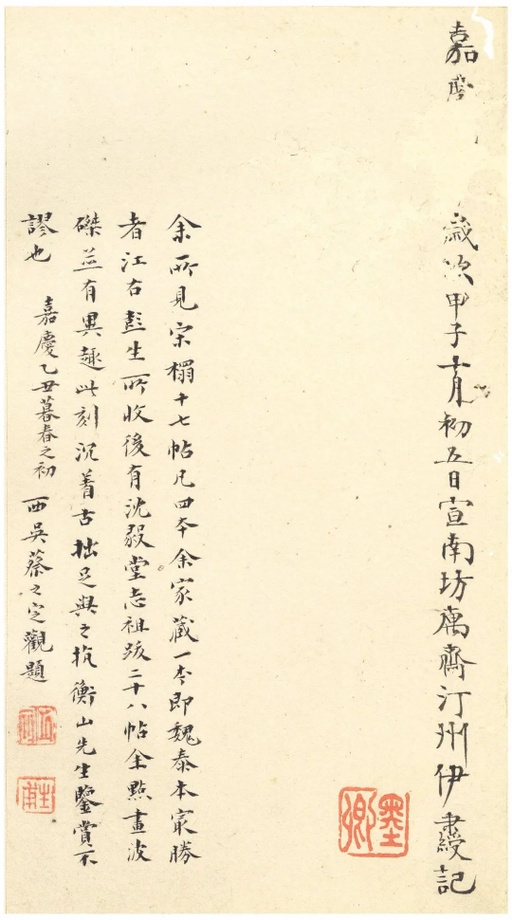 嘉慶 歲次甲子十月初五日宣南坊寓齋汀州伊秉綬記
墨卿
余所見宋榻十七帖凡四本余家藏一本即魏泰本冣勝
者江右彭生所收後有沈毅堂志祖跋二十八帖余點畫波
磔並有異趣此刻沉着古拙足與之抗衡山先生鑒賞不
謬也 嘉慶乙丑暮春之初 西吳蔡之定觀題
生甫